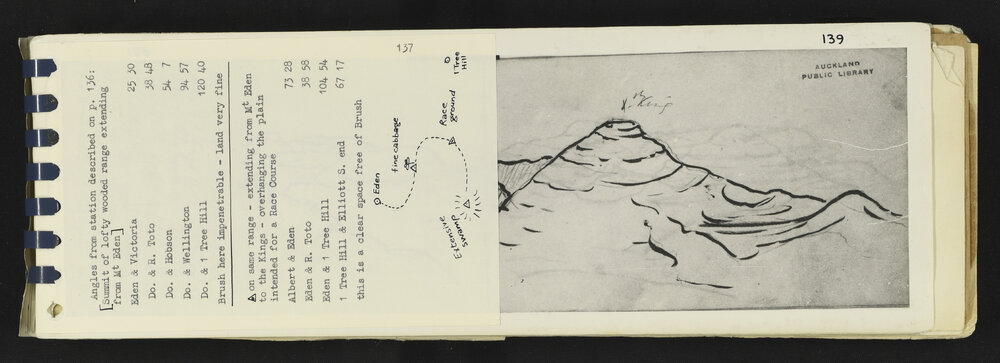 137
Angles from station desribed on p. 136:
[Summit of lofty wooded range extending
from Mt Eden]
Eden & Victoria 25 30
Do. & R. Toto 38 48
Do. & Hobson 54 7
Do. & Wellington 94 57
Do. & 1 Tree Hill 120 40
Brush here impenetrable - land very fine
△ on same range - extending from Mt Eden
to the Kings - overhanging the plain
intended for a Race Course
Albert & Eden 73 28
Eden & R. Toto 38 58
Eden & 1 Tree Hill 104 54
1 Tree Hill & Elliott S. end 67 17
this is a clear space free of Brush
Eden
fine cabbage
Race
ground
1 Tree
Hill
Extensive
swamp
139
AUCKLAND
PUBLIC LIBRARY
King